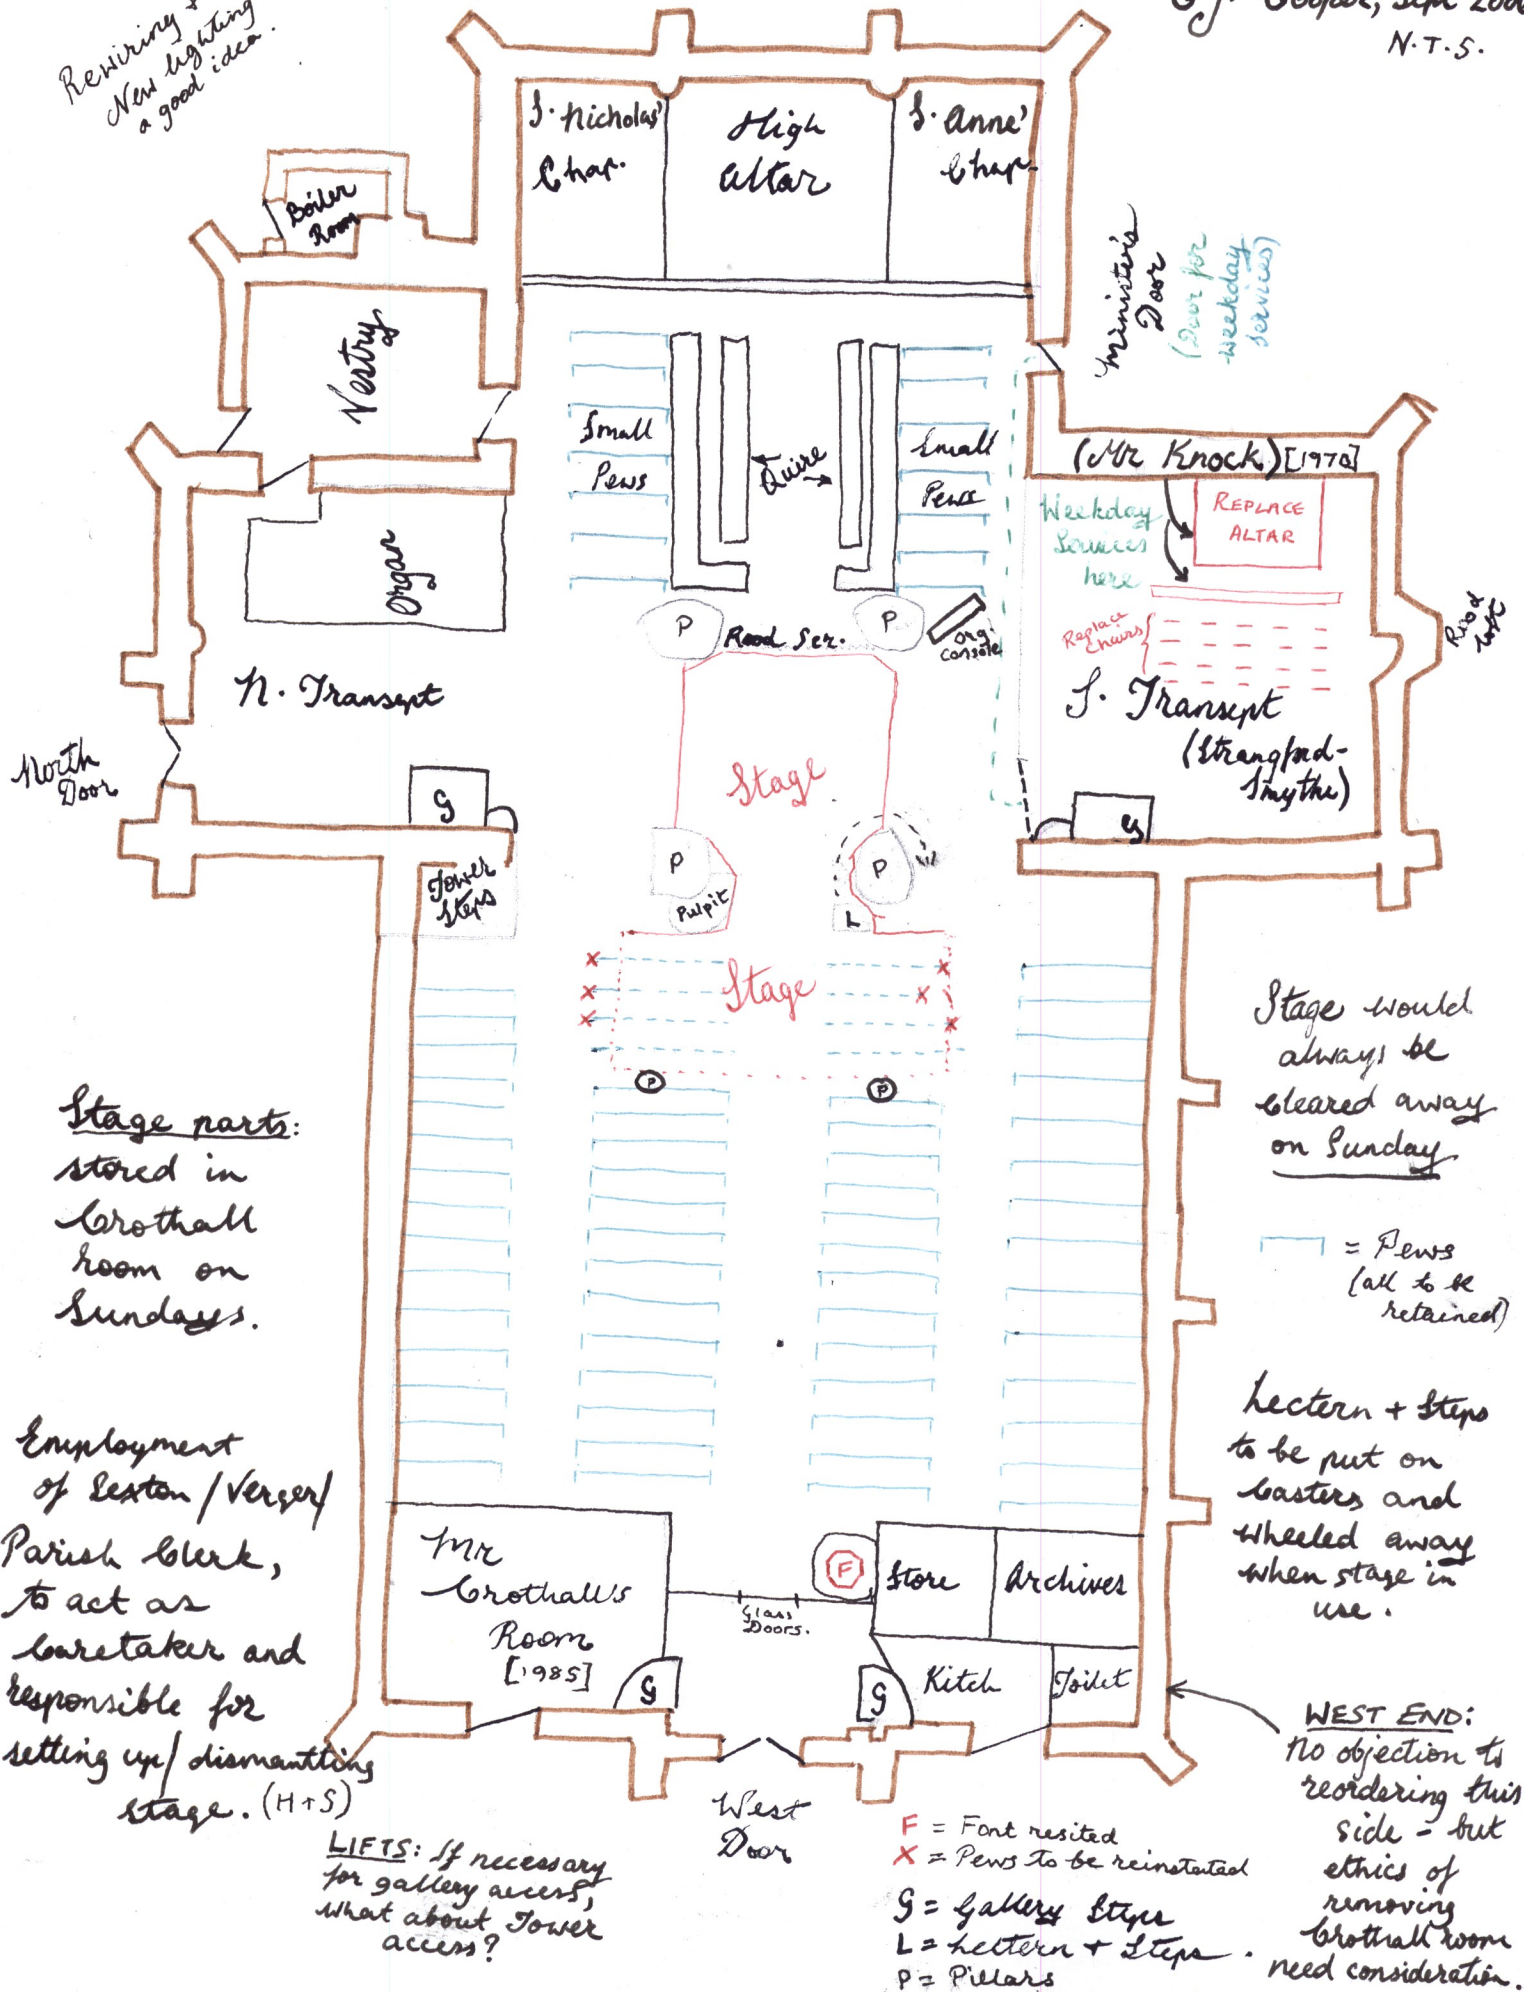 Rewiring +
New lighting
a good idea.
Cooper, Sept 200
N.T.S.
S. Nicholas'
Chap.
High
Altar
S. Anne'
Chap.
Boiler
Room
Minister's
Door
(Door for
weekday
services)
Vestry
Small
Pews
Quire
Small
Pews
(Mr Knock) [1970]
REPLACE
ALTAR
Weekday
Services
here
Replace
Chairs
Organ
P
Rood Scr.
P
Org.
Console
Rood
Loft
N. Transept
S. Transept
(Strangford-
Smythe)
North
Door
Stage
G
G
Tower
Steps
P
Pulpit
P
L
X
X
X
Stage
X
X
X
P
P
Stage would
always be
cleared away
on Sunday
Stage parts:
stored in
Crothall
room on
Sundays.
= Pews
(all to be
retained)
Lectern + Steps
to be put on
casters and
wheeled away
when stage in
use.
Employment
of Sexton/Verger/
Parish Clerk,
to act as
Caretaker and
responsible for
setting up/dismantling
stage. (H+S)
Mr
Crothall's
Room
[1985]
Glass
Doors.
F
Store
Archives
Kitch
Toilet
G
G
West
Door
WEST END:
No objection to
reordering this
side - but
ethics of
removing
Crothall room
need consideration.
LIFTS: If necessary
for gallery access,
what about Tower
access?
F = Font resited
X = Pews to be reinstated
G = Gallery Steps
L = Lectern + Steps.
P = Pillars